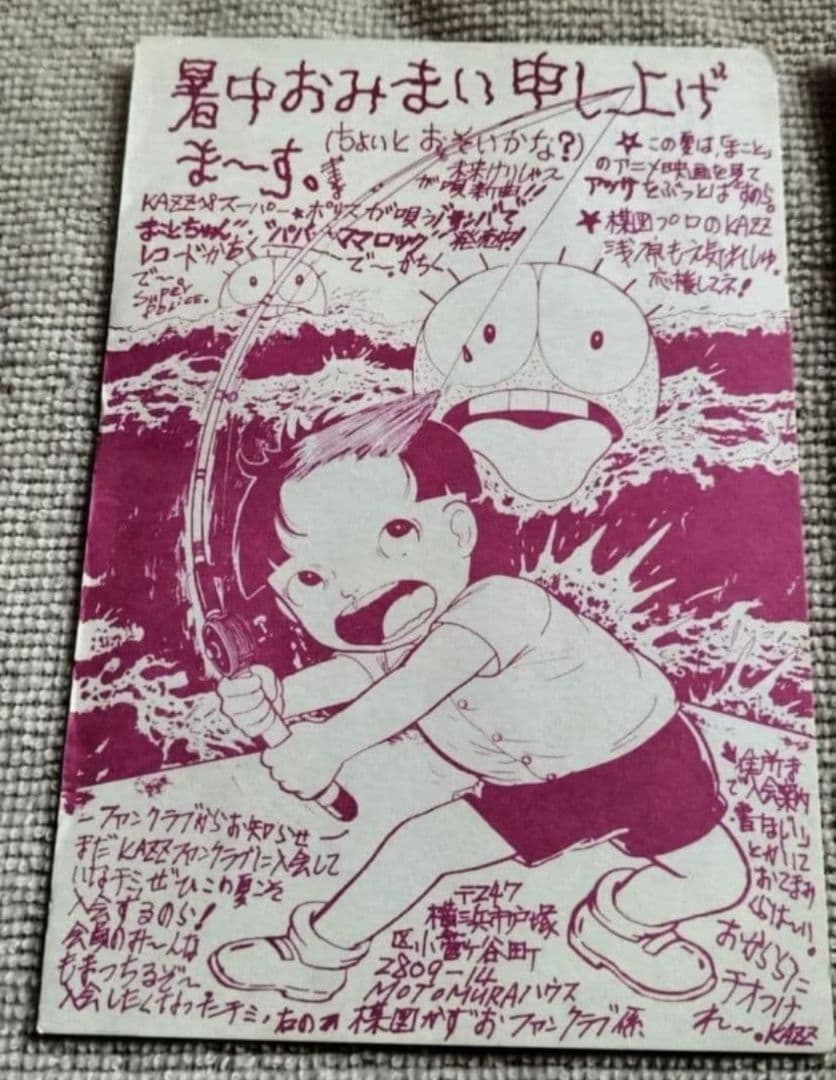 暑中おみまい申し上げ
ま〜す。
(ちょいとおそいかな?)
★この夏は、「まこと」
のアニメ映画を見て
アツサをぶっとばすのら。
★楳図プロのKAZZ
応援してネ!
が唄う新曲!!
KAZZ'sスーパー★ポリスが唄う
まことちゃん
"パパ・ママロック"発売中!
レコードがちく
で〜。がちく
で〜。
Super
ーファンクラブからお知らせー
まだKAZZファンクラブに入会して
いないチミ、ぜひこの夏こそ
入会するのら!
会員のみ〜んな
もまっちるぞ〜
入会したくなったチミ、右の
〒247
横浜市戸塚
区小菅ヶ谷町
2809-14
MOTOMURAハウス
楳図かずおファンクラブ係
住所ま
で「入会案内
とかいて
おからだに
チオつけ
れ〜。KAZZ